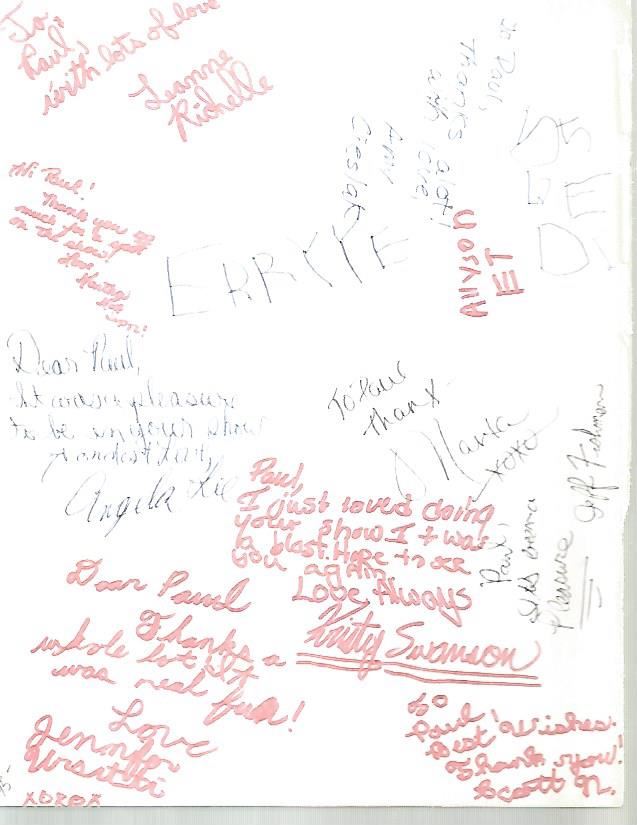 To
Paul,
with lots of love
Leanne
Richelle
to Paul,
Thanks alot!
with love,
Amy
Hi Paul!
Thank you so
much for a spot
on the show!
Love
Allyson
ET
Dear Paul,
It was a pleasure
to be on your show
Angela Lee
To Paul
Thanx
XOXO
Paul,
I just loved doing
your show. It was
a blast. Hope to see
you again
Love Always
Kristy Swanson
Paul,
pleasure
Jeff Fishman
Dear Paul
Thanks a
whole lot it
was real fun!
Love
Jennifer
XOXOX
To
Paul
Best Wishes.
Thank you!
Scott